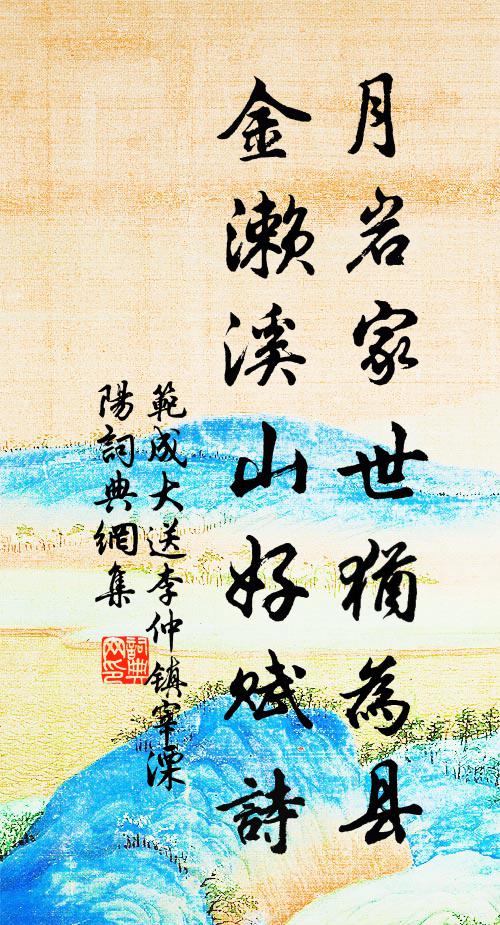 月岩家世犹為县
金濑溪山好赋詩
範成大送李仲镇宰溧
陽詞典網集
詞典
网印